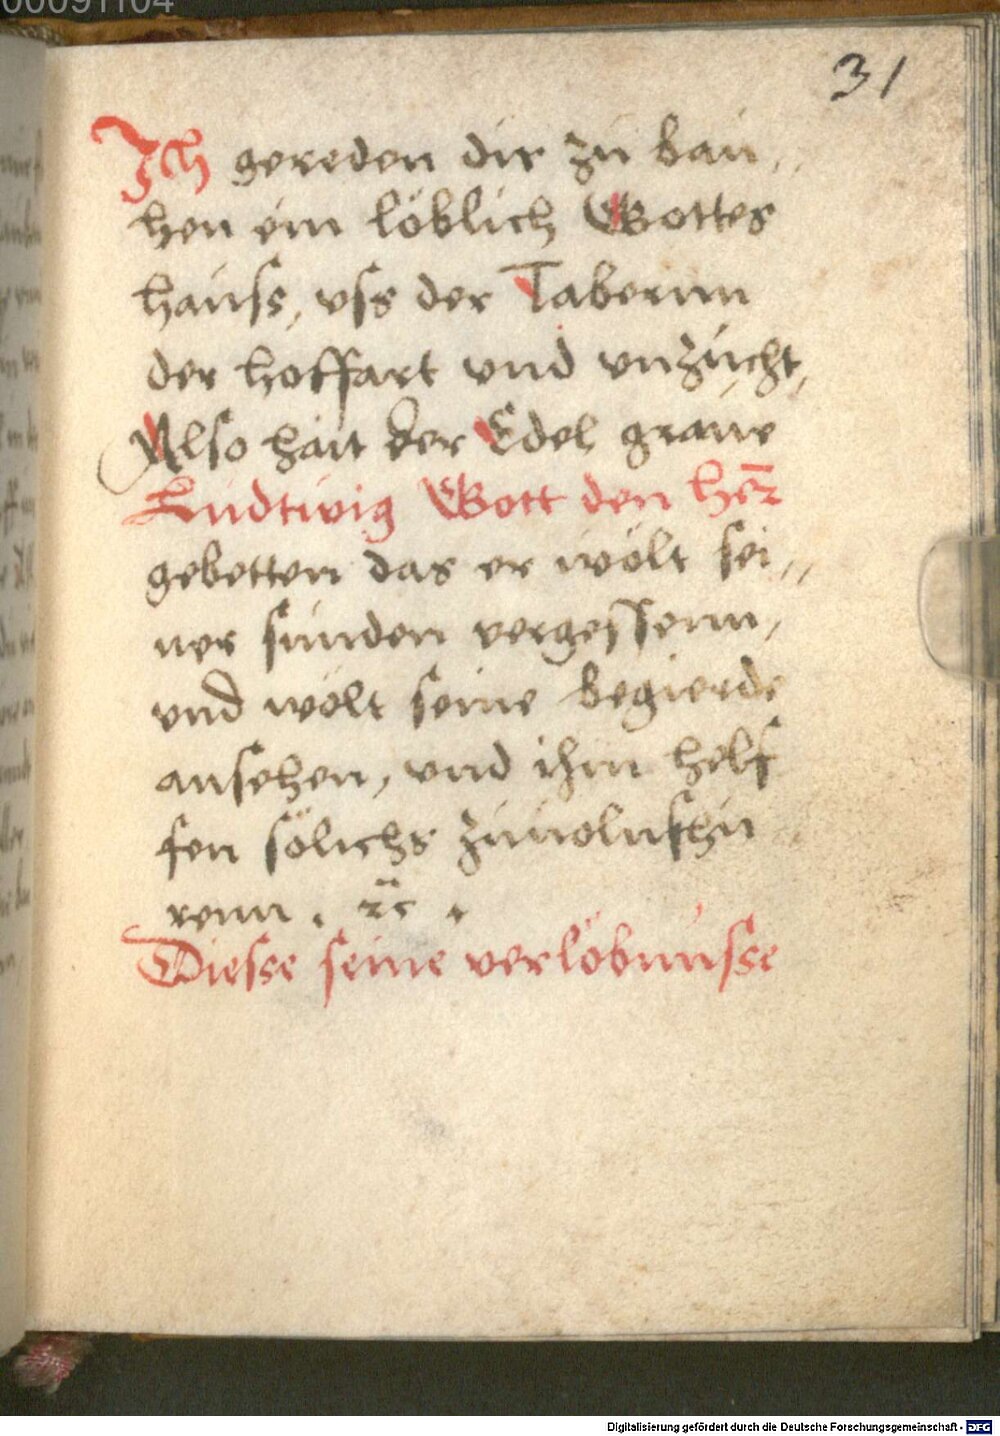 00091104
31
Ich gereden dir zü bau„
hen ein löblich Gottes
hauss, vss der Tabernn
der hoffart vnd vnzücht,
Also hatt der Edel graue
Ludtwig Gott den her̄
gebetten das er wölt sei„
ner sünden vergessenn,
vnd wölt seine begierde
ansehen, vnd ihm helf
fen sölichs zuuolnfhü
renn . ⁊c .
Diesse seine verlöbnüsse
Digitalisierung gefördert durch die Deutsche Forschungsgemeinschaft - DFG